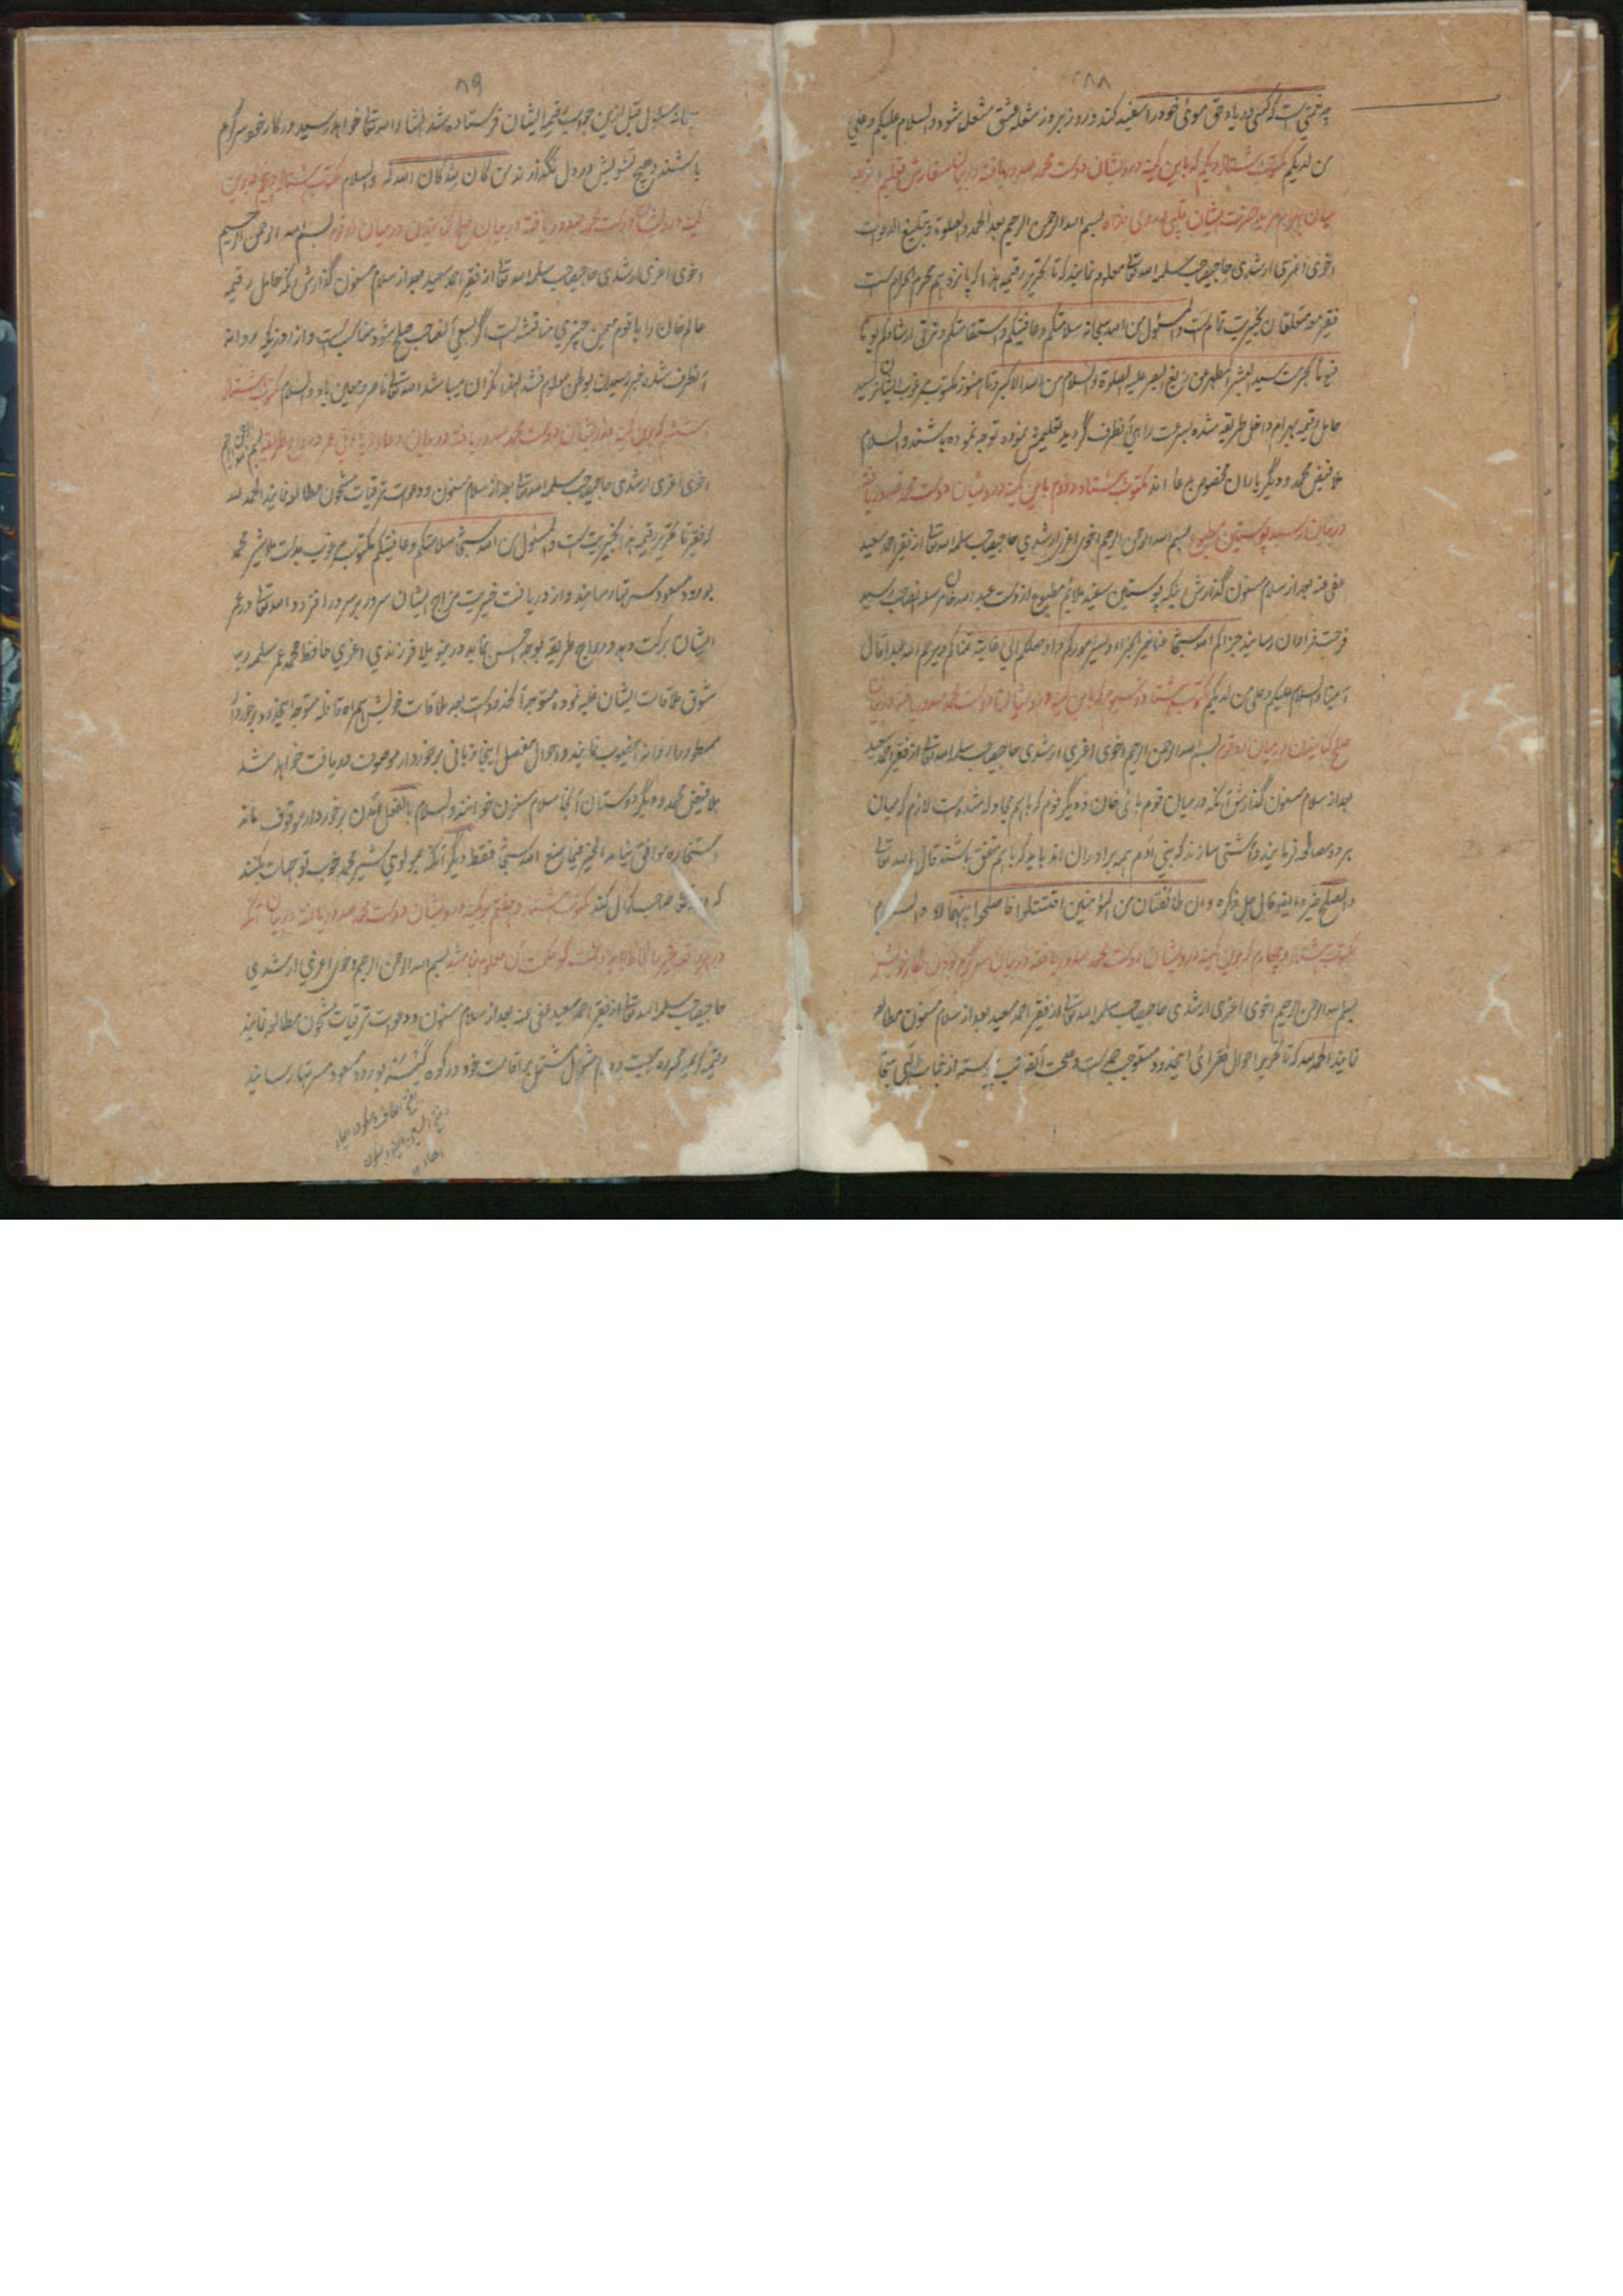 ۸۸
چه نعمتی است که کسی در یاد حق موی خود را سفید کند و روز بروز شعله عشق مشتعل شود والسلام علیکم و علی
من لدیکم مکتوب هشتاد و یکم که باین کمینه درویشان دوست محمد صدور یافته در بیان سفارش تعلیم و توجه
بسم الله الرحمن الرحیم بعد الحمد والصلوة و تبلیغ الدعوات
اخوی اعزی ارشدی حاجیصاحب سلمه الله تعالی معلوم نمایند که تا تحریر رقیمه هذا که پانزدهم محرم الحرام است
فقیر معه متعلقان بخیریت تمام است والمسئول من الله سبحانه سلامتکم وعافیتکم واستقامتکم وترقی ارشادکم یوما
فیوما بحرمت سید البشر المطهر عن زیغ البصر علیه الصلوة والسلام من الله الاکبر تا هنوز مکتوب مرغوب ایشان نرسید
حامل رقیمه بهرام داخل طریقه شده بسرعت راهی آنطرف گردید تعلیمش نموده توجه نموده باشند والسلام
ملا فیض محمد و دیگر یاران مخصوص بدعا اند مکتوب هشتاد و دوم باین کمینه درویشان دوست محمد صدور یافته
در بیان رسید پوستین مطبوع بسم الله الرحمن الرحیم اخوی اعزی ارشدی حاجیصاحب سلمه الله تعالی از فقیر احمد سعید
عفی عنه بعد از سلام مسنون گذارش اینکه پوستین سفید ملائم مطبوع از دست عبد الله خان سلمه الله رسید
فرحت فراوان رسانید جزاکم الله سبحانه عنا خیر الجزاء ویسر امورکم واوصلکم الی غایة متمناکم ویرحم الله عبدا قال
آمینا والسلام علیکم وعلی من لدیکم مکتوب هشتاد و سیوم که باین کمینه درویشان دوست محمد صدور یافته در بیان
صلح کنانیدن در میان دو قوم بسم الله الرحمن الرحیم اخوی اعزی ارشدی حاجیصاحب سلمه الله تعالی از فقیر احمد سعید
بعد از سلام مسنون گذارش آنکه در میان قوم خان و دیگر قوم که باهم مجادله شده است لازم که میان
هر دو مصالحه فرمایند و آشتی سازند که بنی آدم همه برادران اند باید که باهم متفق باشند قال الله تعالی
والصلح خیر و ایضا قال جل ذکره وان طائفتان من المؤمنین اقتتلوا فاصلحوا بینهما والسلام
مکتوب هشتاد و چهارم که باین کمینه درویشان دوست محمد صدور یافته در بیان سرگرم بودن بکار خویش
بسم الله الرحمن الرحیم اخوی اعزی ارشدی حاجیصاحب سلمه الله تعالی از فقیر احمد سعید بعد از سلام مسنون مطالعه
نمایند الحمد لله که تا تحریر احوال فقرای اینحدود مستوجب حمد است وصحت آنصاحب پیوسته از جناب الهی سبحانه
۸۹
مسئول قبل ازین جواب ایشان فرستاده شد انشاء الله تعالی خواهد رسید در کار خود سرگرم
باشند و هیچ تشویش در دل نگذارند من کان لله کان الله له والسلام مکتوب هشتاد و پنجم بدین
کمینه درویشان دوست محمد صدور یافته در بیان صلح کنانیدن در میان دو قوم بسم الله الرحمن الرحیم
اخوی اعزی ارشدی حاجیصاحب سلمه الله تعالی از فقیر احمد سعید بعد از سلام مسنون گذارش آنکه حامل رقیمه
عالم خان را با قوم همین چیزی مناقشه است اگر بسعی آنصاحب صلح شود مناسب است و از روزیکه روانه
آنطرف شدند خبر رسیدن بوطن معلوم نشد لهذا نگران میباشد الله تعالی ناصر و معین باد والسلام مکتوب هشتاد
و ششم که بدین کمینه درویشان دوست محمد صدور یافته در بیان دعا و زیادتی عمر و رواج طریقه بسم الله الرحمن الرحیم
اخوی اعزی ارشدی حاجیصاحب سلمه الله تعالی بعد از سلام مسنون و دعوات ترقیات مشحون مطالعه نمایند الحمد لله
که فقیر تا تحریر رقیمه هذا بخیریت است والمسئول من الله سبحانه سلامتکم وعافیتکم مکتوب مرغوب بدست ملا شیر محمد
بورود مسعود مسرتها رسانید و از دریافت خیریت مزاج ایشان سرور بر سرور افزود الله تعالی در عمر
ایشان برکت دهد و رواج طریقه بوجه احسن نماید درینولا فرزندی اعزی حافظ محمد عمر سلمه ربه
شوق ملاقات ایشان غلبه نموده متوجه آنحدود است بعد ملاقات خویش همراه قافله متوجه اینحدود برخوردار
مسطور را روانه اینصوب نمایند و احوال مفصل اینجا زبانی برخوردار موصوف دریافت خواهد شد
ملا فیض محمد و دیگر دوستان آنجا سلام مسنون خوانند والسلام بالفعل آمدن برخوردار موقوف مانه
استخاره موافق نیامد الخیر فیما صنع الله سبحانه فقط دیگر آنکه بمولوی شیر محمد خوب توجهات بکنند
که صاحب کمال کند مکتوب هشتاد و هفتم بکمینه درویشان دوست محمد صدور یافته در بیان آنکه
بسم الله الرحمن الرحیم اخوی اعزی ارشدی
حاجیصاحب سلمه الله تعالی از فقیر احمد سعید عفی عنه بعد از سلام مسنون و دعوات ترقیات مشحون مطالعه نمایند
رقیمه کریمه محرره بیست و دوم شوال مشتمل بر اقامت خود در کوه بورود مسعود مسرتها رسانید